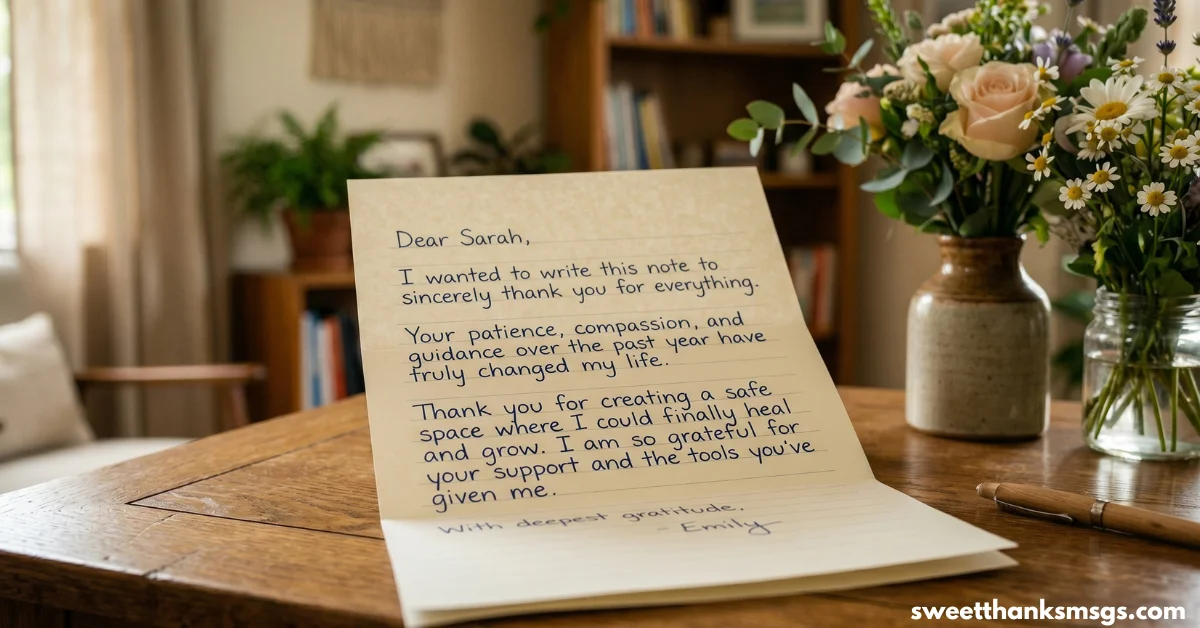 Dear Sarah,
I wanted to write this note to
sincerely thank you for everything.
Your patience, compassion, and
guidance over the past year have
truly changed my life.
Thank you for creating a safe
space where I could finally heal
and grow. I am so grateful for
your support and the tools you've
given me.
With deepest gratitude.
- Emily
sweetthanksmsgs.com